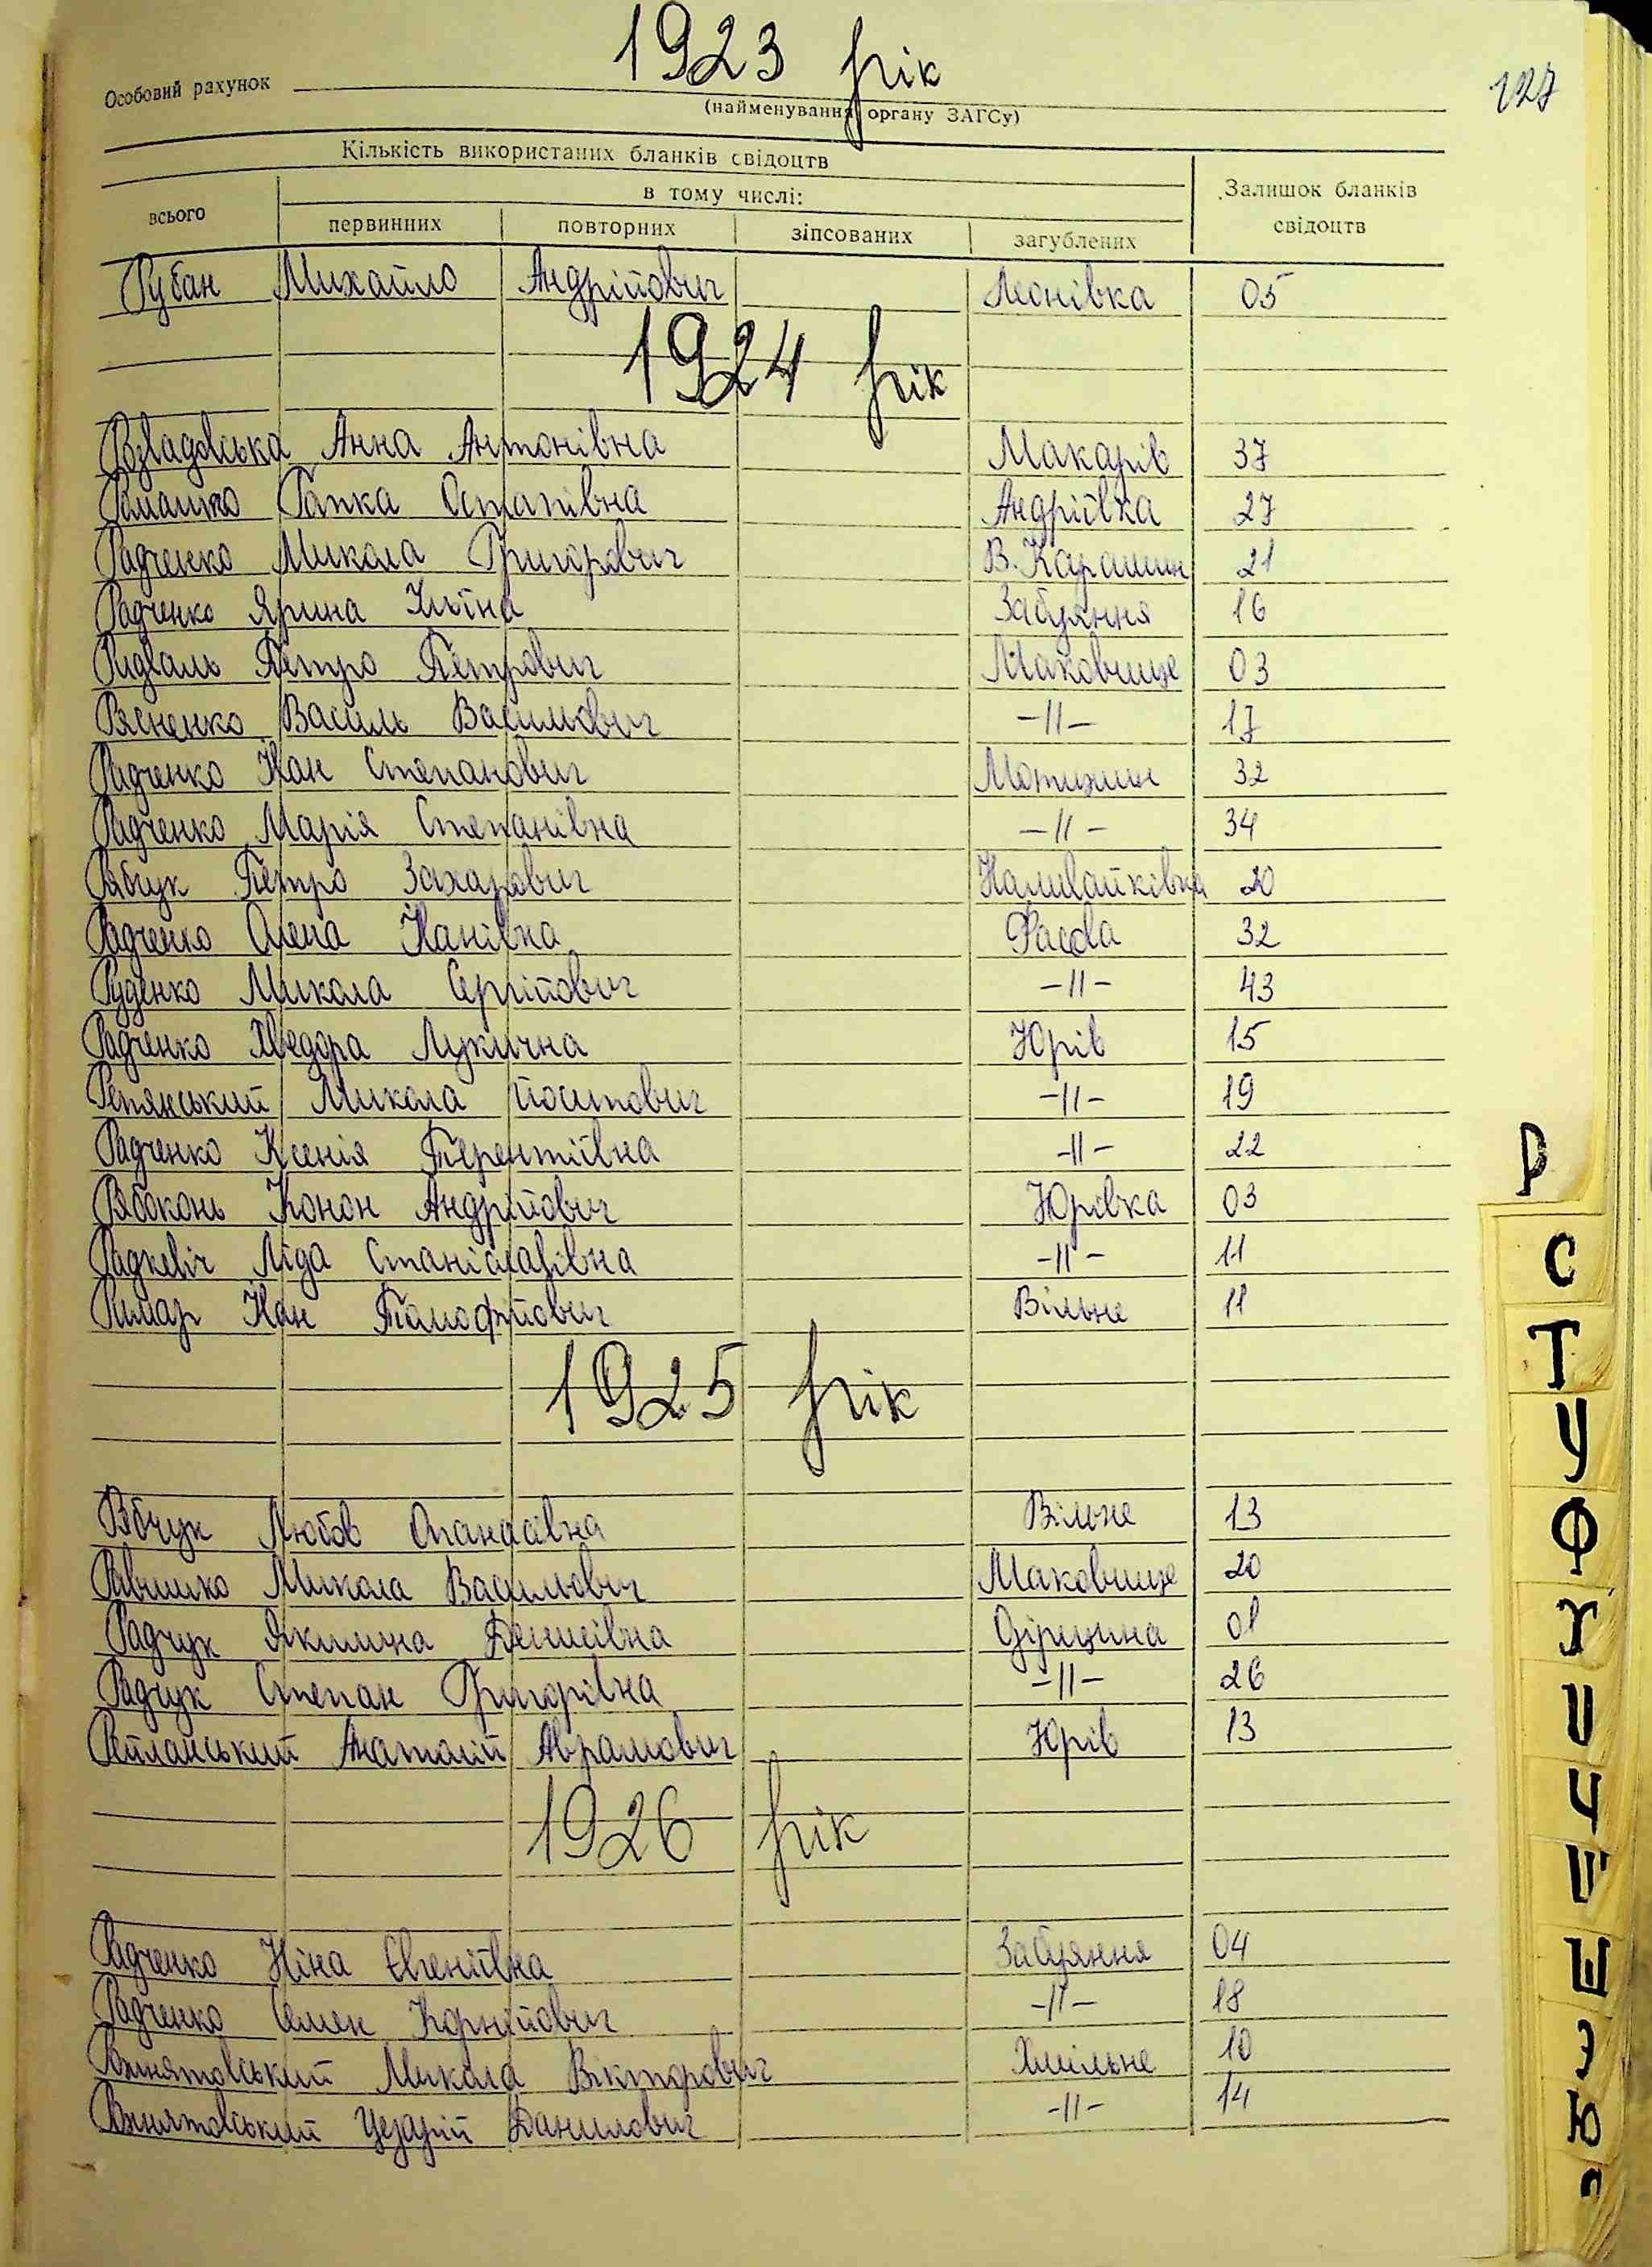 1923 рік
127
Особовий рахунок
(найменування органу ЗАГСу)
Кількість використаних бланків свідоцтв
Залишок бланків свідоцтв
в тому числі:
всього первинних повторних зіпсованих загублених
Рубан Михайло Андрійович Леонівка 05
1924 рік
Розвадовська Анна Антонівна Макарів 37
Ромашко Гапка Остапівна Андріївка 27
Радченко Микола Григорович В.Карашин 21
Радченко Ярина Ільїна Забуяння 16
Ридваль Петро Петрович Маковище 03
Рясненко Василь Васильович -||- 17
Радченко Іван Степанович Мотижин 32
Радченко Марія Степанівна -||- 34
Рябчук Петро Захарович Наливайківка 20
Радченко Олена Іванівна Фасова 32
Руденко Микола Сергійович -||- 43
Радченко Хведора Лукична Юрів 15
Репянський Микола Йосипович -||- 19
Радченко Ксенія Терентіївна -||- 22
Рябоконь Конон Андрійович Юрівка 03
Радкевіч Ліда Станіславівна -||- 11
Римар Іван Тимофійович Вільне 11
1925 рік
Рябчук Любов Опанасівна Вільне 13
Микола Васильович Маковище 20
Радчук Якилина Денисівна 01
Радчук Степан Григорівна -||- 26
Анатолій Абрамович Юрів 13
1926 рік
Радченко Ніна Євгеніївна Забуяння 04
Радченко Семен Корнійович -||- 18
Микола Вікторович Хмільне 10
Цезарій Данилович -||- 14
Р
С
Т
У
Ф
Х
Ц
Ч
Ш
Щ
Э
Ю